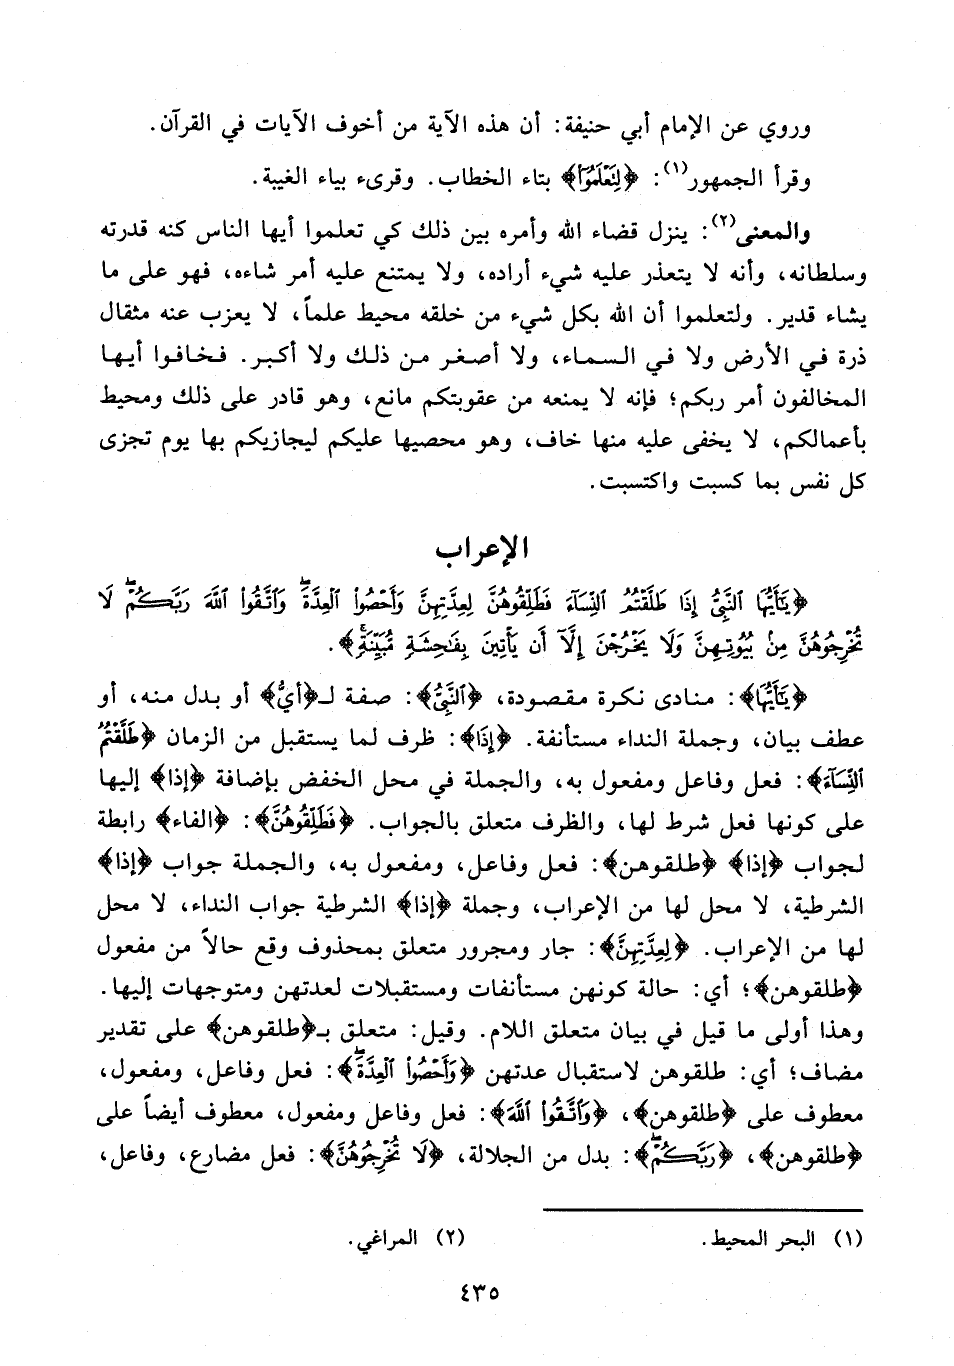 وروي عن الإمام أبي حنيفة: أن هذه الآية من أخوف الآيات في القرآن.
وقرأ الجمهور(١): ﴿لِتَعْلَمُوٓا۟﴾ بتاء الخطاب. وقرىء بياء الغيبة.
والمعنى(٢): ينزل قضاء الله وأمره بين ذلك كي تعلموا أيها الناس كنه قدرته
وسلطانه، وأنه لا يتعذر عليه شيء أراده، ولا يمتنع عليه أمر شاءه، فهو على ما
يشاء قدير. ولتعلموا أن الله بكل شيء من خلقه محيط علماً، لا يعزب عنه مثقال
ذرة في الأرض ولا في السماء، ولا أصغر من ذلك ولا أكبر. فخافوا أيها
المخالفون أمر ربكم؛ فإنه لا يمنعه من عقوبتكم مانع، وهو قادر على ذلك ومحيط
بأعمالكم، لا يخفى عليه منها خاف، وهو محصيها عليكم ليجازيكم بها يوم تجزى
كل نفس بما كسبت واكتسبت.
الإعراب
﴿يَٰٓأَيُّهَا ٱلنَّبِىُّ إِذَا طَلَّقْتُمُ ٱلنِّسَآءَ فَطَلِّقُوهُنَّ لِعِدَّتِهِنَّ وَأَحْصُوا۟ ٱلْعِدَّةَ ۖ وَٱتَّقُوا۟ ٱللَّهَ رَبَّكُمْ ۖ لَا
تُخْرِجُوهُنَّ مِنۢ بُيُوتِهِنَّ وَلَا يَخْرُجْنَ إِلَّآ أَن يَأْتِينَ بِفَٰحِشَةٍ مُّبَيِّنَةٍ ۚ﴾.
﴿يَٰٓأَيُّهَا﴾: منادى نكرة مقصودة، ﴿ٱلنَّبِىُّ﴾: صفة لـ﴿أيُّ﴾ أو بدل منه، أو
عطف بيان، وجملة النداء مستأنفة. ﴿إِذَا﴾: ظرف لما يستقبل من الزمان ﴿طَلَّقْتُمُ
ٱلنِّسَآءَ﴾: فعل وفاعل ومفعول به، والجملة في محل الخفض بإضافة ﴿إذا﴾ إليها
على كونها فعل شرط لها، والظرف متعلق بالجواب. ﴿فَطَلِّقُوهُنَّ﴾: ﴿الفاء﴾ رابطة
لجواب ﴿إذا﴾ ﴿طلقوهن﴾: فعل وفاعل، ومفعول به، والجملة جواب ﴿إذا﴾
الشرطية، لا محل لها من الإعراب، وجملة ﴿إذا﴾ الشرطية جواب النداء، لا محل
لها من الإعراب. ﴿لِعِدَّتِهِنَّ﴾: جار ومجرور متعلق بمحذوف وقع حالاً من مفعول
﴿طلقوهن﴾؛ أي: حالة كونهن مستأنفات ومستقبلات لعدتهن ومتوجهات إليها.
وهذا أولى ما قيل في بيان متعلق اللام. وقيل: متعلق بـ﴿طلقوهن﴾ على تقدير
مضاف؛ أي: طلقوهن لاستقبال عدتهن ﴿وَأَحْصُوا۟ ٱلْعِدَّةَ ۖ﴾: فعل وفاعل، ومفعول،
معطوف على ﴿طلقوهن﴾، ﴿وَٱتَّقُوا۟ ٱللَّهَ﴾: فعل وفاعل ومفعول، معطوف أيضاً على
﴿طلقوهن﴾، ﴿رَبَّكُمْ ۖ﴾: بدل من الجلالة، ﴿لَا تُخْرِجُوهُنَّ﴾: فعل مضارع، وفاعل،
(١) البحر المحيط. (٢) المراغي.
٤٣٥